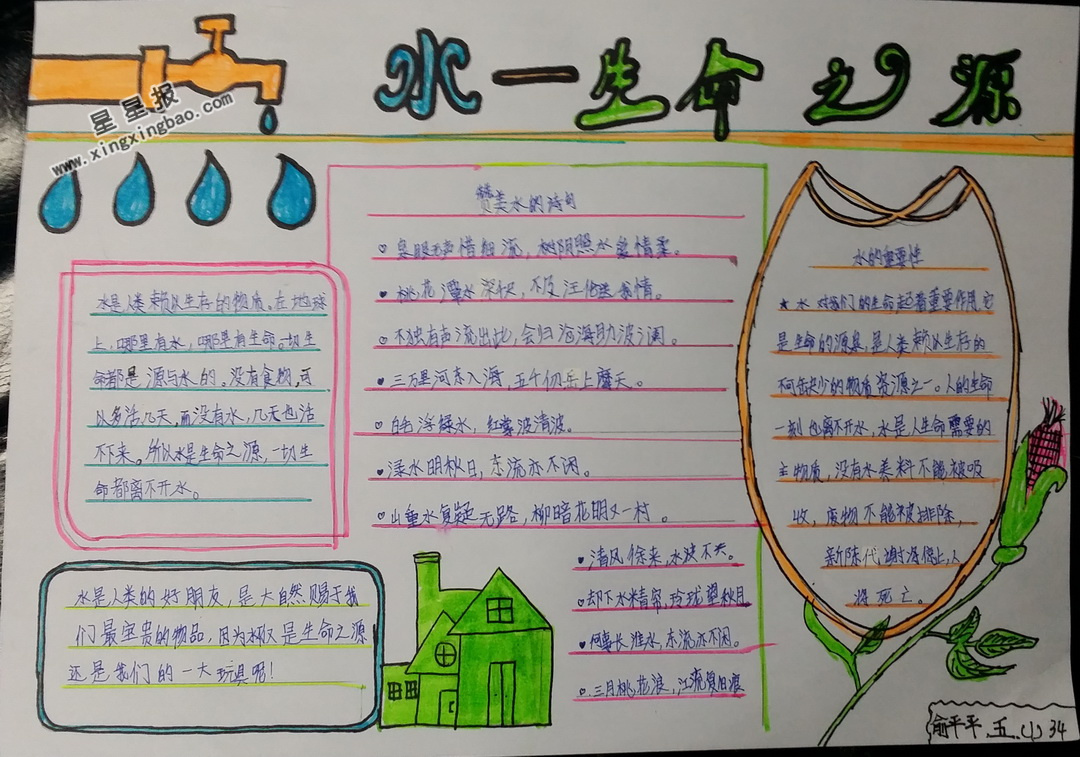 水—生命之源
星星报
www.xingxingbao.com
水是人类赖以生存的物质。在地球
上,哪里有水,哪里有生命。一切生
命都是源与水的。没有食物,可
以多活几天,而没有水,几天也活
不下来。所以水是生命之源,一切生
命都离不开水。
水是人类的好朋友,是大自然赐于我
们最宝贵的物品,因为水又是生命之源
还是我们的一大玩具呢!
赞美水的诗句
泉眼无声惜细流,树阴照水爱情柔。
桃花潭水深千尺,不及汪伦送我情。
不独有声流出地,会归沧海助波澜。
三万里河东入海,五千仞岳上摩天。
白毛浮绿水,红掌波清波。
渌水明秋日,东流亦不闲。
山重水复疑无路,柳暗花明又一村。
清风徐来,水波不兴。
却下水精帘,玲珑望秋月
何事长淮水,东流亦不闲。
三月桃花浪,江流复旧痕
水的重要性
★水对我们的生命起着重要作用,它
是生命的源泉,是人类赖以生存的
不可缺少的物质资源之一。人的生命
一刻也离不开水,水是人生命需要的
主物质,没有水养料不能被吸
收,废物不能被排除,
新陈代谢将停止,人
将死亡。
俞平平.五.(1) 34